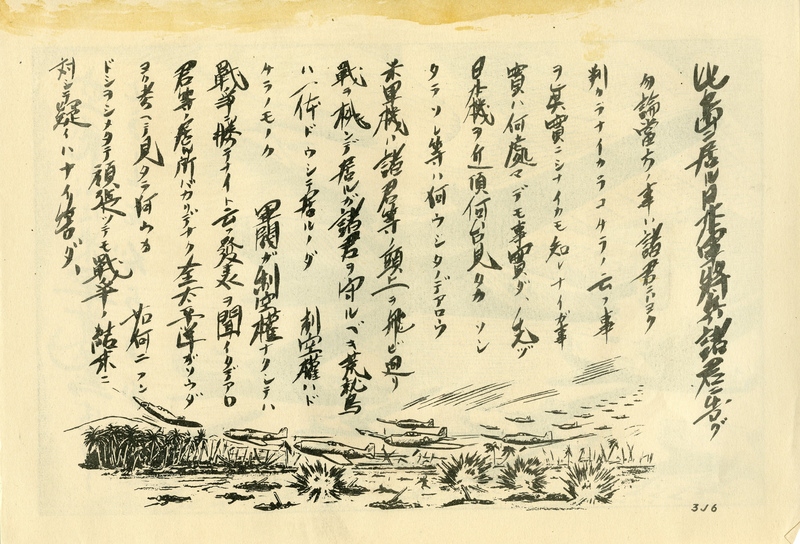 此ノ島ニ居ル日本軍將兵諸君ニ告グ
勿論當方ノ事ハ諸君ニハヨク
判ラナイカラコチラノ云フ事
ヲ眞實ニシナイカモ知レナイガ事
實ハ何處マデモ事實ダ、先ヅ
日本機ヲ近頃何台見タカ ソシ
タラソレ等ハ何ウシタノデアロウ
米軍機ハ諸君等ノ頭上ヲ飛ビ廻リ
戰ヲ挑ンデ居ルガ諸君ヲ守ルベキ荒鷲
ハ一体ドウシテ居ルノダ 制空權ハド
チラノモノダ 軍閥ガ制空權ナクシテハ
戰爭ニ勝テナイト云フ發表ヲ聞イタデアロ
君等ノ居ル所バカリデナク全太平洋ガソウダ
ヨク考ヘテ見タラ何ウカ 如何ニフン
ドシヲシメタテ頑張ツテモ戰爭ノ結末ニ
対シテ疑ハナイ筈ダ、
3J6